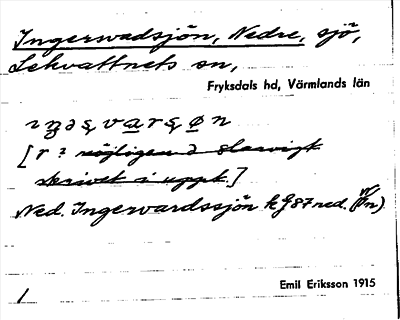 Ingerwadsjön, Nedre, sjö,
Lekvattnets sn,
Fryksdals hd, Värmlands län
[r ? möjligen ə slarvigt
skrivet i uppt.]
Ned. Ingervardssjön kg 87 ned.
Emil Eriksson 1915
1